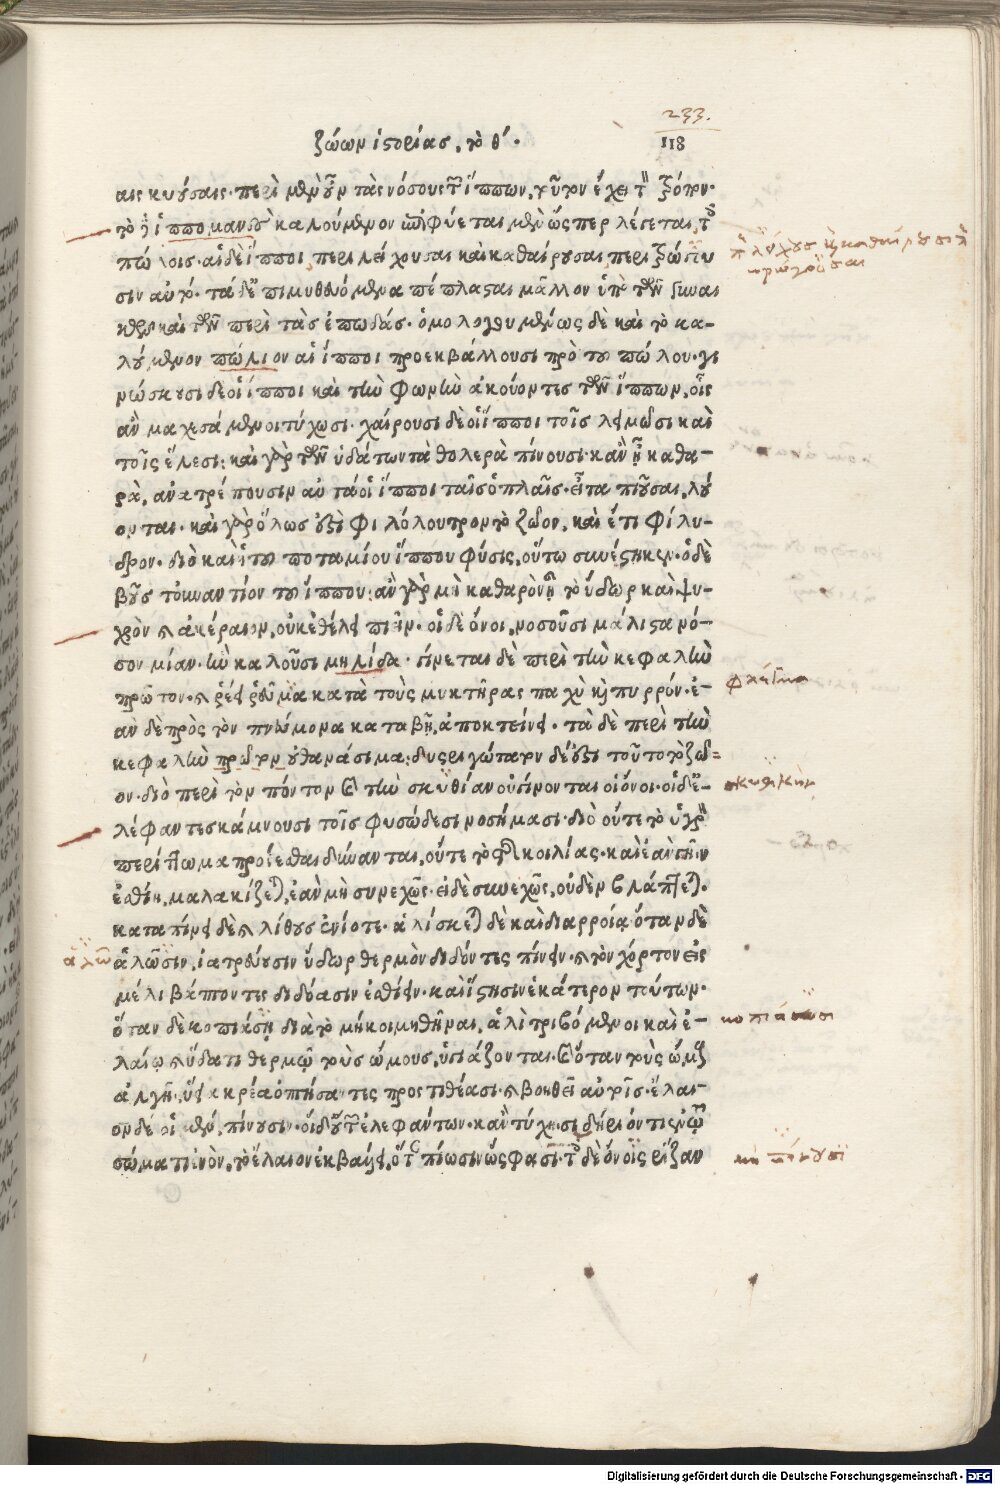 233.
ζώων ἱστορίας. τὸ θ΄.
118
αις κυούσαις. περὶ μὲν οὖν τὰς νόσους τῶν ἵππων, τοῦτον ἔχει τὸν τρόπον.
τὸ δὲ ἱππομανὲς καλούμενον ἐπιφύεται μὲν ὥσπερ λέγεται, τοῖς
πώλοις. αἱ δὲ ἵπποι περιλείχουσαι καὶ καθαίρουσαι περιτρώγου
σιν αὐτό. τὰ δὲ ἐπιμυθευόμενα πέπλασται μᾶλλον ὑπὸ τῶν γυναι
κῶν καὶ τῶν περὶ τὰς ἐπωδάς. ὁμολογουμένως δὲ καὶ τὸ κα-
λούμενον πώλιον αἱ ἵπποι προεκβάλλουσι πρὸ τοῦ πώλου. γι
νώσκουσι δὲ οἱ ἵπποι καὶ τὴν φωνὴν ἀκούοντες τῶν ἵππων, οἷς
ἂν μαχεσάμενοι τύχωσι. χαίρουσι δὲ οἱ ἵπποι τοῖς λειμῶσι καὶ
τοῖς ἕλεσι: καὶ γὰρ τῶν ὑδάτων τὰ θολερὰ πίνουσι. κἂν ᾖ καθα-
ρὰ, ἀνατρέπουσιν αὐτὰ οἱ ἵπποι ταῖς ὁπλαῖς. εἶτα πιοῦσαι, λού
ονται. καὶ γὰρ ὅλως ἐστὶ φιλόλουτρον τὸ ζῶον, καὶ ἔτι φίλυ-
δρον. διὸ καὶ ἡ τοῦ ποταμίου ἵππου φύσις, οὕτω συνέστηκεν. ὁ δὲ
βοῦς τοὐναντίον τοῦ ἵππου: ἂν γὰρ μὴ καθαρὸν ᾖ τὸ ὕδωρ καὶ ψυ-
χρὸν καὶ ἀκέραιον, οὐκ ἐθέλει πιεῖν. οἱ δὲ ὄνοι, νοσοῦσι μάλιστα νό-
σον μίαν. ἣν καλοῦσι μηλίδα. γίνεται δὲ περὶ τὴν κεφαλὴν
πρῶτον. καὶ ῥέει ῥεῦμα κατὰ τοὺς μυκτῆρας παχὺ καὶ πυρρόν. ἐ-
ὰν δὲ πρὸς τὸν πνεύμονα καταβῇ, ἀποκτείνει. τὰ δὲ περὶ τὴν
κεφαλὴν πρῶτον οὐ θανάσιμα: δυσριγώτατον δέ ἐστι τοῦτο τὸ ζῶ=
ον. διὸ περὶ τὸν πόντον καὶ τὴν σκυθίαν οὐ γίνονται οἱ ὄνοι. οἱ δὲ ἐ-
λέφαντες κάμνουσι τοῖς φυσώδεσι νοσήμασι. διὸ οὔτε τὸ ὑγρὸν
περίττωμα προίεσθαι δύνανται, οὔτε τὸ τῆς κοιλίας. καὶ ἐὰν γῆν
ἐσθίῃ, μαλακίζεται, ἐὰν μὴ συνεχῶς. εἰ δὲ συνεχῶς, οὐδὲν βλάπτεται.
καταπίνει δὲ καὶ λίθους ἐνίοτε. ἁλίσκεται δὲ καὶ διαρροίᾳ. ὅταν δὲ
ἀλῶ ἁλῶσιν, ἰατρεύουσιν ὕδωρ θερμὸν διδόντες πίνειν. καὶ τὸν χόρτον εἰς
μέλι βάπτοντες διδόασιν ἐσθίειν. καὶ ἵστησιν ἑκάτερον τούτων.
ὅταν δὲ κοπιάσῃ διὰ τὸ μὴ κοιμηθῆναι, ἁλὶ τριβόμενοι καὶ ἐ-
λαίῳ καὶ ὕδατι θερμῷ τοὺς ὤμους, ὑγιάζονται. καὶ ὅταν τοὺς ὤμους
ἀλγῇ, ὕεια κρέα ὀπτήσαντες προστιθέασι. καὶ βοηθεῖ αὐτοῖς. ἔλαι-
ον δὲ οἱ μὲν, πίνουσιν. οἱ δ᾽ οὔ τῶν ἐλεφάντων. κἂν τύχῃ τι σιδήριον τι ἐν τῷ
σώματι ἐνὸν, τὸ ἔλαιον ἐκβάλλει, ὅταν πίωσιν ὥς φασι. τοῖς δὲ ὄνοις ῥίζαν
φλέγμα
σκυθικὴν
κοπιάσωσι
μὴ πίνουσι
Digitalisierung gefördert durch die Deutsche Forschungsgemeinschaft - DFG